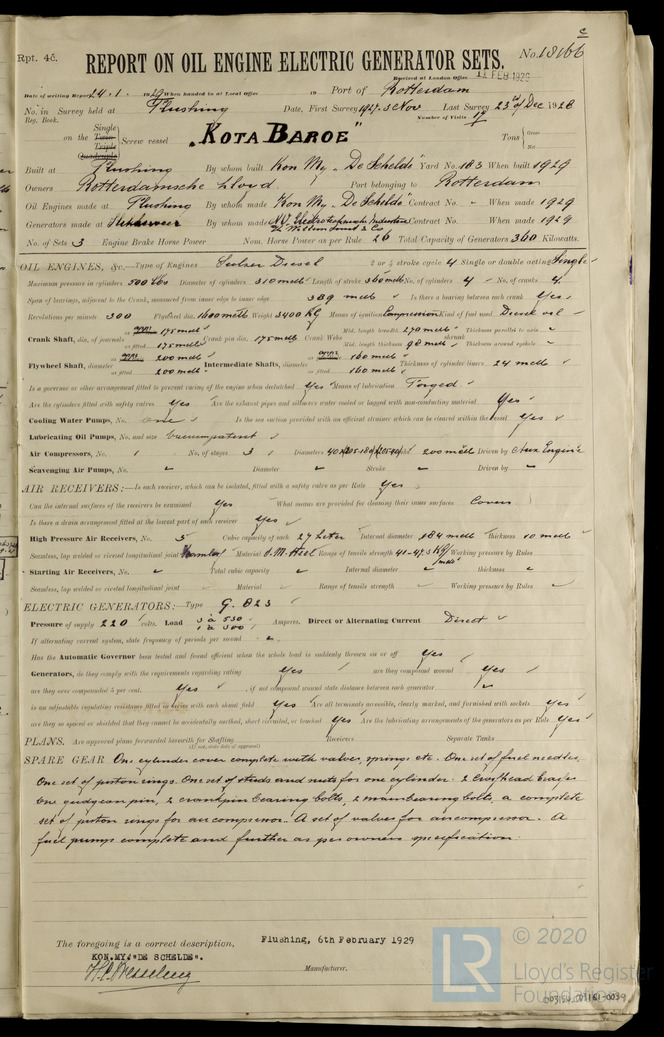 c
Rpt. 4c.
REPORT ON OIL ENGINE ELECTRIC GENERATOR SETS. No. 18166
Received at London Office 11 FEB 1929
Date of writing Report 24.1.1929 When handed in at Local Office 19 Port of Rotterdam
No. in Reg. Book. Survey held at Flushing Date, First Survey 1927. 3 Nov Last Survey 23rd of Dec 1928
Number of Visits 19
on the Single Twin Triple Quadruple Screw vessel "KOTA BAROE" Tons Gross Net
Built at Flushing By whom built Kon My. "De Schelde" Yard No. 183 When built 1929
Owners Rotterdamsche Lloyd. Port belonging to Rotterdam
Oil Engines made at Flushing By whom made Kon My "De Schelde" Contract No. " When made 1929
Generators made at By whom made Contract No. When made 1929
No. of Sets 3 Engine Brake Horse Power Nom. Horse Power as per Rule 26 Total Capacity of Generators 360 Kilowatts.
OIL ENGINES, &c.—Type of Engines Sulzer Diesel 2 or 4 stroke cycle 4 Single or double acting Single
Maximum pressure in cylinders 500 lbs Diameter of cylinders 310 Length of stroke 360 No. of cylinders 4 No. of cranks 4.
Span of bearings, adjacent to the Crank, measured from inner edge to inner edge 389 Is there a bearing between each crank Yes
Revolutions per minute 300 Flywheel dia. 1600 Weight 3400 KG Means of ignition Compression Kind of fuel used Diesel oil
Crank Shaft, dia. of journals as fitted 175 Crank pin dia. 175 Crank Webs Mid. length breadth 270 Thickness parallel to axis
Mid. length thickness 90 shrunk Thickness around eyehole
Flywheel Shaft, diameter as fitted 200 Intermediate Shafts, diameter as fitted 160 Thickness of cylinder liners 24
Is a governor or other arrangement fitted to prevent racing of the engine when declutched Yes Means of lubrication Forged
Are the cylinders fitted with safety valves Yes Are the exhaust pipes and silencers water cooled or lagged with non-conducting material Yes
Cooling Water Pumps, No. one Is the sea suction provided with an efficient strainer which can be cleared within the vessel Yes
Lubricating Oil Pumps, No. and size
Air Compressors, No. 1 No. of stages 3 Diameters Stroke 200 Driven by Aux Engine
Scavenging Air Pumps, No. " Diameter " Stroke " Driven by "
AIR RECEIVERS:—Is each receiver, which can be isolated, fitted with a safety valve as per Rule Yes
Can the internal surfaces of the receivers be examined Yes What means are provided for cleaning their inner surfaces Covers
Is there a drain arrangement fitted at the lowest part of each receiver Yes
High Pressure Air Receivers, No. 5 Cubic capacity of each 27 Liter Internal diameter 184 thickness 10
Seamless, lap welded or riveted longitudinal joint Material S.M. Steel Range of tensile strength 41-47.3 KG/ Working pressure by Rules
Starting Air Receivers, No. " Total cubic capacity " Internal diameter " thickness "
Seamless, lap welded or riveted longitudinal joint Material Range of tensile strength Working pressure by Rules
ELECTRIC GENERATORS:—Type G. 823
Pressure of supply 220 volts. Load 3 à 530 1 à 500 Amperes. Direct or Alternating Current Direct
If alternating current system, state frequency of periods per second
Has the Automatic Governor been tested and found efficient when the whole load is suddenly thrown on or off Yes
Generators, do they comply with the requirements regarding rating Yes are they compound wound Yes
are they over compounded 5 per cent. Yes , if not compound wound state distance between each generator
is an adjustable regulating resistance fitted in series with each shunt field Yes Are all terminals accessible, clearly marked, and furnished with sockets Yes
are they so spaced or shielded that they cannot be accidentally earthed, short circuited, or touched Yes Are the lubricating arrangements of the generators as per Rule Yes
PLANS. Are approved plans forwarded herewith for Shafting Receivers Separate Tanks
(If not, state date of approval)
SPARE GEAR One cylinder cover complete with valves, springs etc. One set of fuel needles,
One set of piston rings. One set of studs and nuts for one cylinder. 2 Crosshead brasses
One gudgeon pin, 2 crankpin bearing bolts, 2 main bearing bolts, a complete
set of piston rings for aircompressor. A set of valves for aircompressor. A
fuel pumps complete and further as per owners specification.
The foregoing is a correct description,
Flushing, 6th February 1929
KON.MY."DE SCHELDE".
Manufacturer.
LR © 2020
Lloyd's Register
Foundation